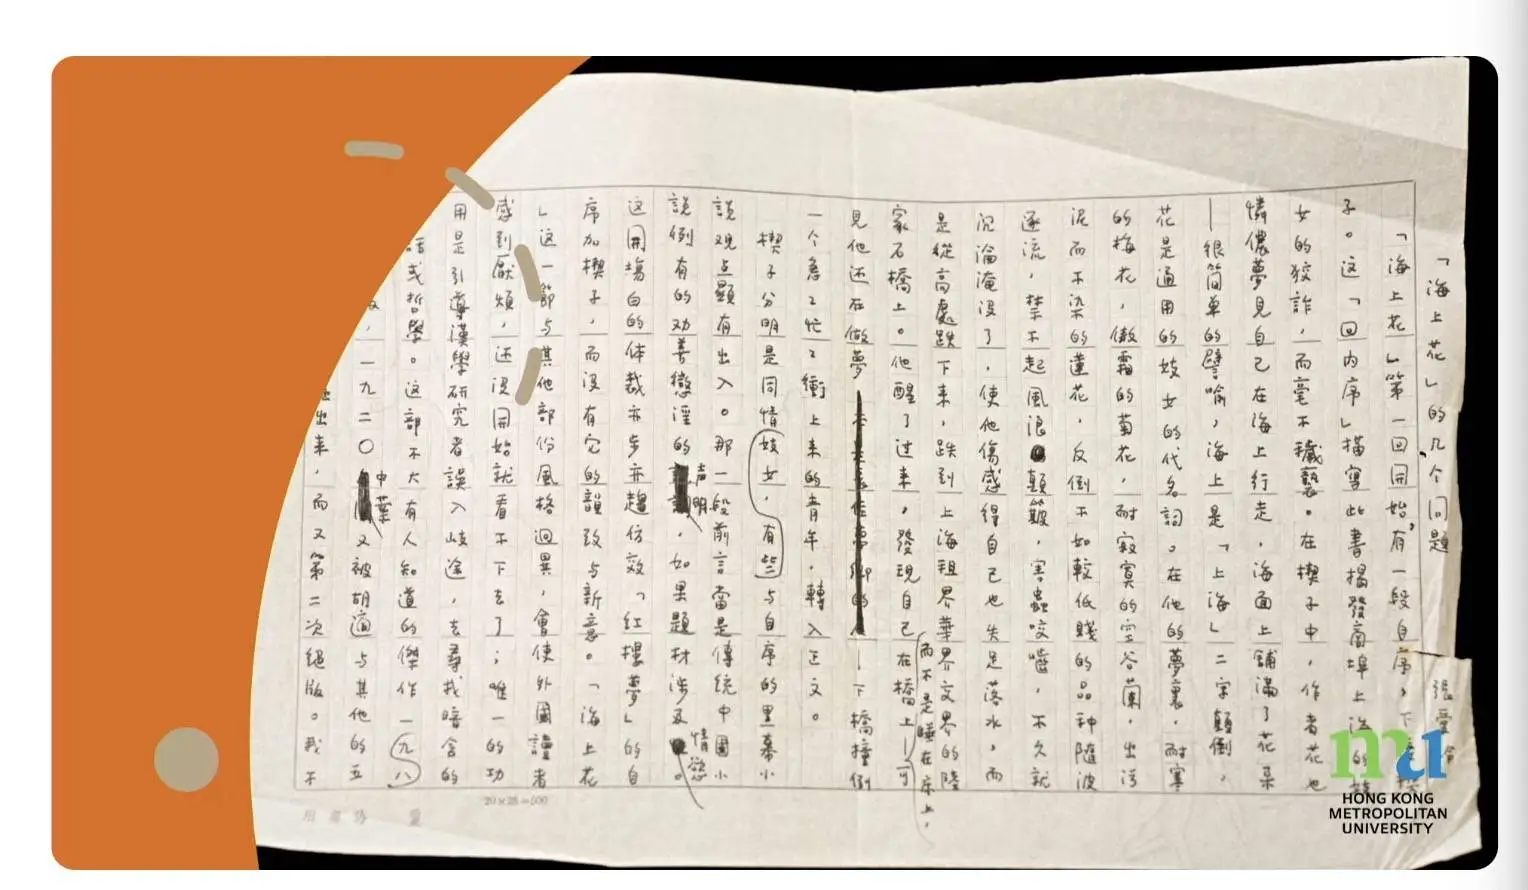 「海上花」的几个问题
張愛玲
「海上花」第一回開始有一段自序，下
子。这「回内序」描寫此書揭發商埠上海的妓
女的狡詐，而毫不穢褻。在楔子中，作者花也
憐儂夢見自己在海上行走，海面上鋪滿了花朵
—很简单的譬喻，海上是「上海」二字顛倒，
花是通用的妓女的代名詞。在他的夢裏，耐寒
的梅花，傲霜的菊花，耐寂寞的空谷蘭，出污
泥而不染的蓮花，反倒不如較低賤的品种隨波
逐流，禁不起風浪顛簸，害蟲咬嚙，不久就
沉淪淹没了，使他傷感得自己也失足落水，而
是從高處跌下来，跌到上海租界華界交界的陸
家石橋上。他醒了过来，發現自己在橋上—可
而不是睡在床上，
見他还在做夢—下橋撞倒
一个急々忙々衝上来的青年，轉入正文。
楔子分明是同情妓女，有些与自序的黑幕小
説观点顯有出入。那一段前言當是傳統中國小
説例有的劝善懲淫的声明，如果題材涉及情慾。
这開場白的体裁亦步亦趨仿效「紅樓夢」的自
序加楔子，而没有它的韻致与新意。「海上花
」这一節与其他部份風格迥異，會使外國讀者
感到厭煩，还没開始就看不下去了；唯一的功
用是引導漢學研究者誤入岐途，去尋找暗含的
話或哲學。这部不大有人知道的傑作一九八
，一九二〇中葉又被胡適与其他的五
出来，而又第二次絕版。我不
20×25=500
HONG KONG
METROPOLITAN
UNIVERSITY